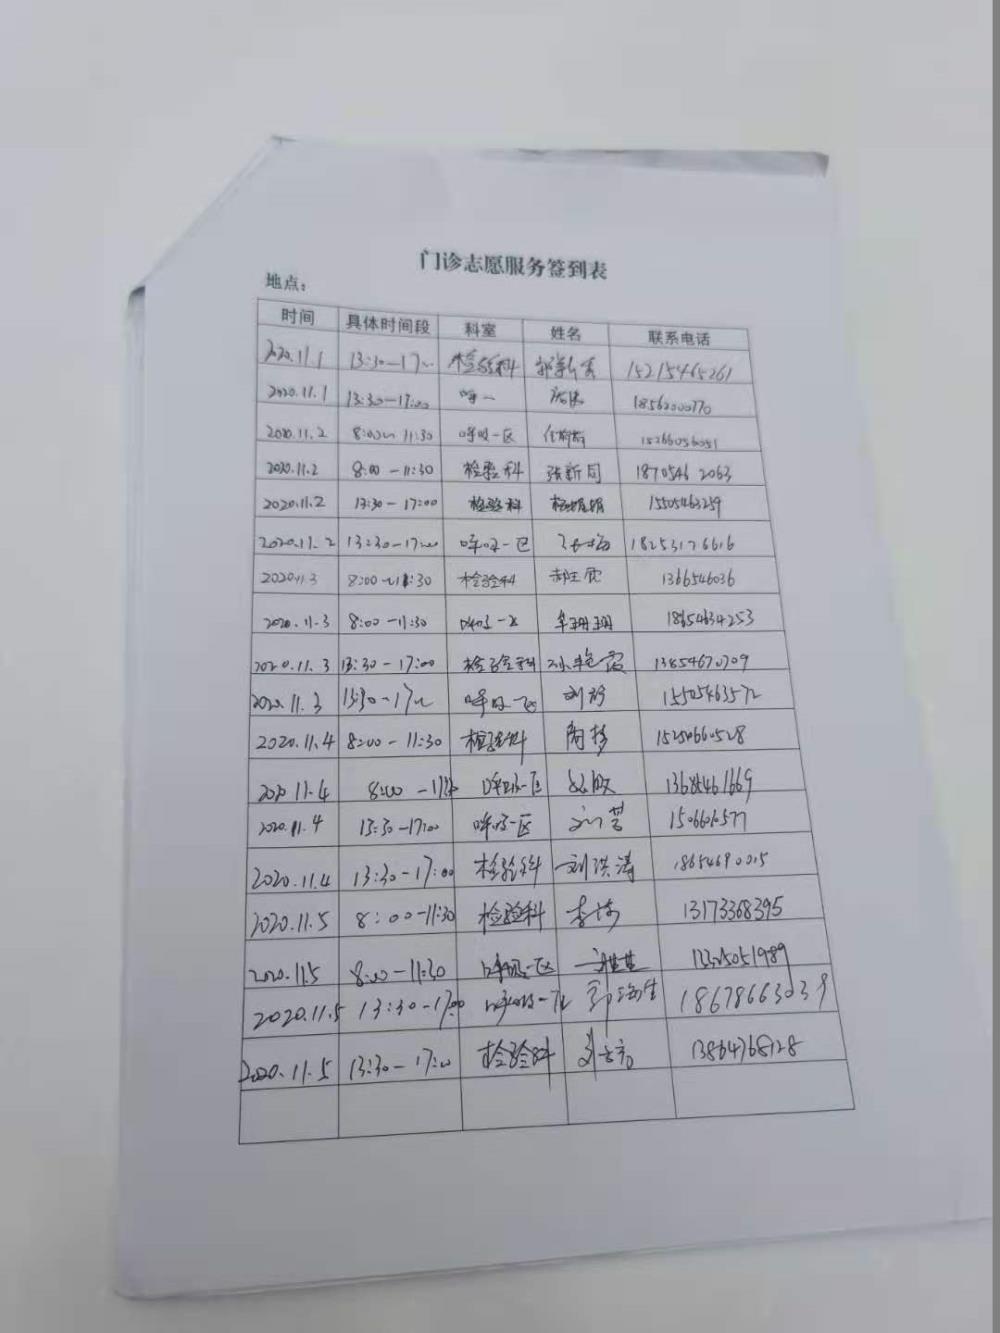 门诊志愿服务签到表
地点：
时间 具体时间段 科室 姓名 联系电话
2020.11.1 13:30-17:00 检验科 15215465261
2020.11.1 13:30-17:00 呼一 18562000770
2020.11.2 8:00~11:30 呼吸一区 15266056051
2020.11.2 8:00-11:30 检验科 张新同 18705462063
2020.11.2 13:30-17:00 检验科 15505463259
2020.11.2 13:30-17:00 呼吸一区 18253176616
2020.11.3 8:00~11:30 检验科 1366546036
2020.11.3 8:00-11:30 呼吸一区 牟珊珊 18654634253
2020.11.3 13:30-17:00 检验科 孙艳霞 13854670709
2020.11.3 13:30-17:00 呼吸一区 15505463572
2020.11.4 8:00-11:30 检验科 15250660528
2020.11.4 8:00-11:30 呼吸一区
2020.11.4 13:30-17:00 呼吸一区
2020.11.4 13:30-17:00 检验科 刘洪涛 18654690015
2020.11.5 8:00-11:30 检验科 13173368395
2020.11.5 8:00-11:30 呼吸一区
2020.11.5 13:30-17:00 呼吸一区 18678663039
2020.11.5 13:30-17:00 检验科 13864768128